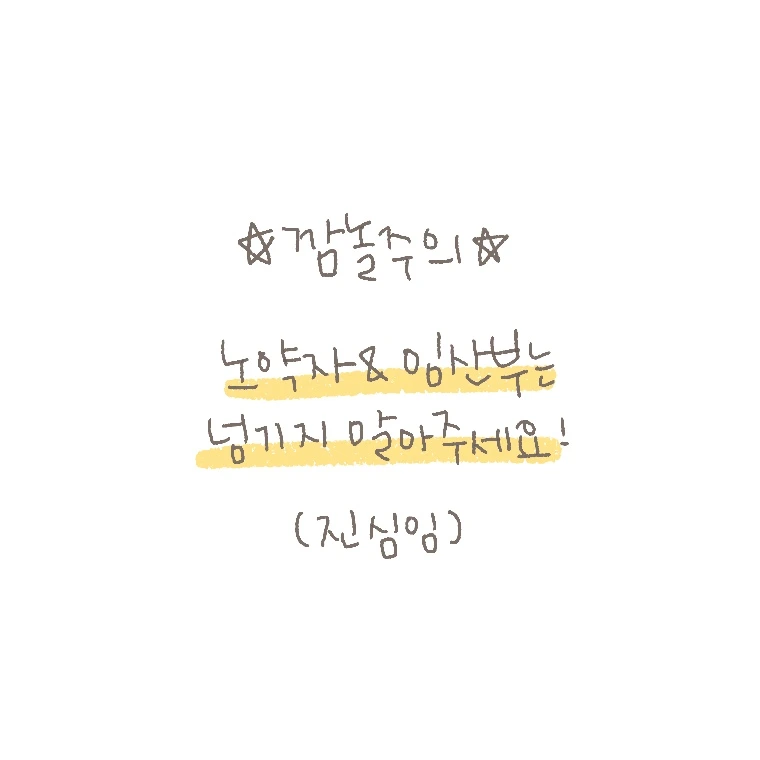 ☆깜놀주의☆
노약자 & 임산부는
넘기지 말아주세요!
(진심임)